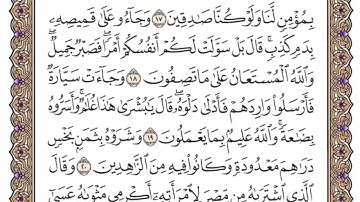 بِمُؤْمِنٍ لَّنَا وَلَوْ كُنَّا صَٰدِقِينَ ١٧ وَجَآءُو عَلَىٰ قَمِيصِهِۦ
بِدَمٍ كَذِبٍ ۚ قَالَ بَلْ سَوَّلَتْ لَكُمْ أَنفُسُكُمْ أَمْرًا ۖ فَصَبْرٌ جَمِيلٌ ۖ
وَٱللَّهُ ٱلْمُسْتَعَانُ عَلَىٰ مَا تَصِفُونَ ١٨ وَجَآءَتْ سَيَّارَةٌ
فَأَرْسَلُوا۟ وَارِدَهُمْ فَأَدْلَىٰ دَلْوَهُۥ ۖ قَالَ يَٰبُشْرَىٰ هَٰذَا غُلَٰمٌ ۚ وَأَسَرُّوهُ
بِضَٰعَةً ۚ وَٱللَّهُ عَلِيمٌۢ بِمَا يَعْمَلُونَ ١٩ وَشَرَوْهُ بِثَمَنٍۭ بَخْسٍ
دَرَٰهِمَ مَعْدُودَةٍ وَكَانُوا۟ فِيهِ مِنَ ٱلزَّٰهِدِينَ ٢٠ وَقَالَ
ٱلَّذِى ٱشْتَرَىٰهُ مِن مِّصْرَ لِٱمْرَأَتِهِۦٓ أَكْرِمِى مَثْوَىٰهُ عَسَىٰٓ